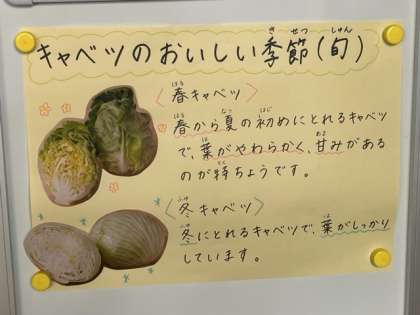 キャベツのおいしい季節(旬)
〈春キャベツ〉
春から夏の初めにとれるキャベツ
で、葉がやわらかく、甘みがある
のが特ちょうです。
〈冬キャベツ〉
冬にとれるキャベツで、葉がしっかり
しています。